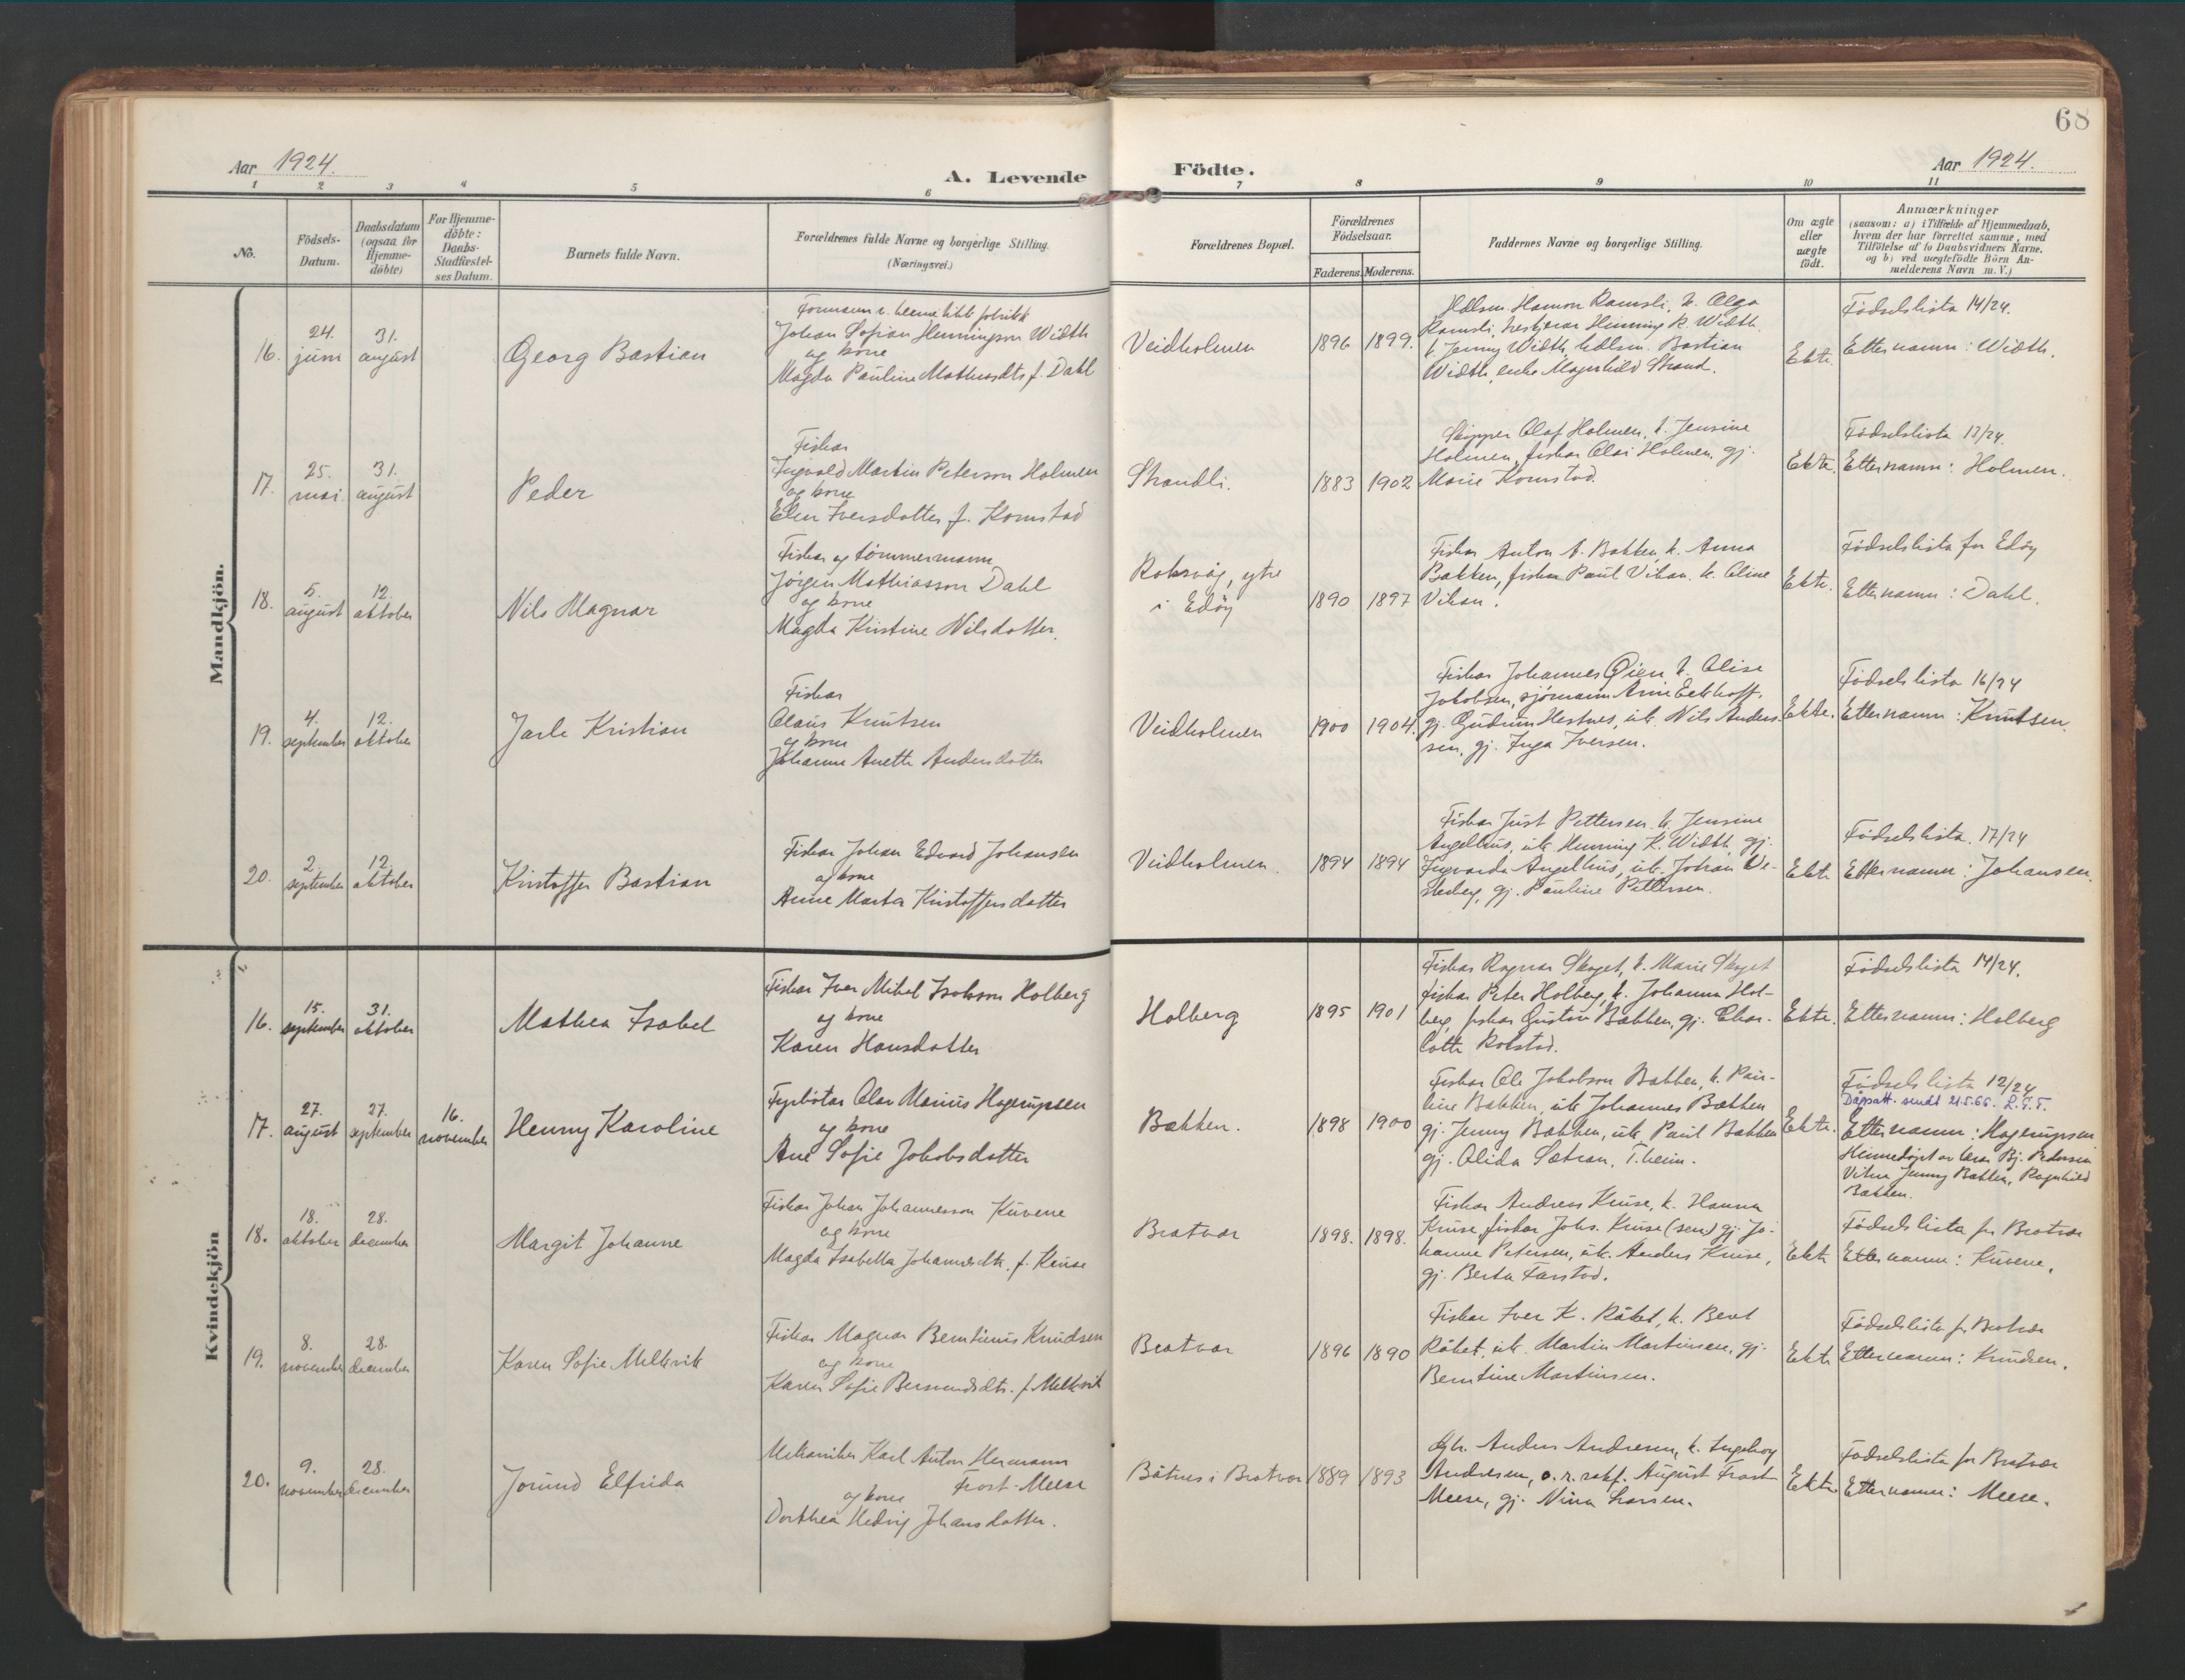 68
Aar 1924.
A. Levende Födte.
Aar 1924.
1 2 3 4 5 6 7 8 9 10 11
No.
Födsels-
Datum.
Daabsdatum
(ogsaa for
Hjemme-
döbte)
For Hjemme-
döbte:
Daabs-
Stadfæstel-
ses Datum.
Barnets fulde Navn.
Forældrenes fulde Navne og borgerlige Stilling.
(Næringsvei.)
Forældrenes Bopæl.
Forældrenes
Födselsaar.
Faderens. Moderens.
Faddernes Navne og borgerlige Stilling.
Om ægte
eller
uægte
födt.
Anmærkninger
(saasom: a) i Tilfælde af Hjemmedaab,
hvem der har forrettet samme, med
Tilföielse af to Daabsvidners Navne.
og b) ved uægtefödte Börn An-
melderens Navn m. V.)
Mandkjön.
16.
24.
juni
31.
august
Georg Bastian
Formann v. hermetikk fabrikk
Johan Sofian Henningson Width
og kone
Magda Pauline Mathiasdtr f. Dahl
Veidholmen
1896
1899.
Hamon Ramsli, k. Olga
Ramsli, Henning K. Width
k. Jenny Width, Bastian
Width, enke Magnhild Strand.
Ekte.
Födselslista 14/24.
Etternamn: Width.
17.
25.
mai
31.
august
Peder
Fiskar
Ingvald Martin Peterson Holmen
og kone
Elen Iversdotter f. Komstad
Strandli.
1883
1902
Skipper Olaf Holmen, k. Jensine
Holmen, fiskar Olai Holmen, gj.
Marie Komstad.
Ekte.
Födselslista 13/24.
Etternamn: Holmen.
18.
5.
august
12.
oktober
Nils Magnar
Fiskar og tömmermann
Jörgen Mathiasson Dahl
og kone
Magda Kristine Nilsdotter.
Roksvåg, ytre
i Edöy
1890
1897
Fiskar Anton A. Bakken, k. Anna
Bakken, fiskar Paul Vikan, k. Oline
Vikan.
Ekte.
Födselslista for Edöy
Etternamn: Dahl.
19.
4.
september
12.
oktober
Jarle Kristian
Fiskar
Olaus Knutsen
og kone
Johanne Anette Andersdotter
Veidholmen
1900
1904.
Fiskar Johannes Øien, k. Olise
Jakobsen, sjömann Arne Eekhoff,
gj. Gudrun Hestnes, uk. Nils Ander-
sen, gj. Inga Iversen.
Ekte.
Födselslista 16/24
Etternamn: Knutsen.
20.
2.
september
12.
oktober
Kristoffer Bastian
Fiskar Johan Edvard Johansen
og kone
Anne Marta Kristoffersdotter
Veidholmen.
1894
1894
Fiskar Just Pettersen, k. Jensine
Angellhus, uk. Henning K. Width, gj.
Ingvarda Angellhus, uk. Johan Ve-
gj. Pauline Pettersen.
Ekte
Födselslista 17/24
Etternamn: Johansen.
Kvindekjön
16.
15.
september
31.
oktober
Mathea Isabel
Fiskar Iver Mikal Isakson Holberg
og kone
Karen Hansdotter
Holberg
1895
1901
Fiskar Ragnar Skaget, k. Marie Skaget
fiskar Peter Holberg, k. Johanna Hol-
berg, fiskar Gustav Bakken, gj. Char-
lotte Rokstad.
Ekte.
Födselslista 14/24.
Etternamn: Holberg
17.
27.
august
27.
september
16.
november
Henny Karoline
Fyrbötar Olav Marius Hagerupsen
og kone
Ane Sofie Jakobsdotter
Bakken.
1898
1900
Fiskar Ole Jakobson Bakken, k. Pau-
line Bakken, uk. Johannes Bakken
gj. Jenny Bakken, uk. Paul Bakken
gj. Olida Sætran, T.heim.
Ekte.
Födselslista 12/24
Dåpsatt. sendt 21.5.66.
Etternamn: Hagerupsen
Heimedöpt av Bj. Pedersen
Vitne Jenny Bakken, Ragnhild
Bakken.
18.
18.
oktober
28.
december
Margit Johanne
Fiskar Johan Johannesson Kuvene
og kone
Magda Isabella Johannesdtr. f. Kruse
Bratvær
1898.
1898.
Fiskar Andreas Kruse, k. Hanna
Kruse, fiskar Johs. Kruse (sen) gj. Jo-
hanne Petersen, uk. Anders Kruse,
gj. Berta Farstad.
Ekte
Födselslista for Bratvær
Etternamn: Kuvene.
19.
8.
november
28.
december
Karen Sofie Melkvik
Fiskar Magnar Berntinus Knudsen
og kone
Karen Sofie f. Melkvik
Bratvær
1896
1890
Fiskar Iver K. Råket, k. Berit
Råket, uk. Martin Martinsen, gj.
Berntine Martinsen.
Ekte
Födselslista for Bratvær
Etternamn: Knudsen.
20.
9.
november
28.
december
Jorund Elfrida
Mekaniker Karl Anton Hermann
Frost-Meese
og kone
Dorthea Hedvig Johansdotter.
Båtnes i Bratvær
1889
1893
Anders Andresen, k. Ingeborg
Andresen, o.r.sakf. August Frost
Meese, gj. Nina Larsen.
Ekte
Födselslista for Bratvær
Etternamn: Meese.